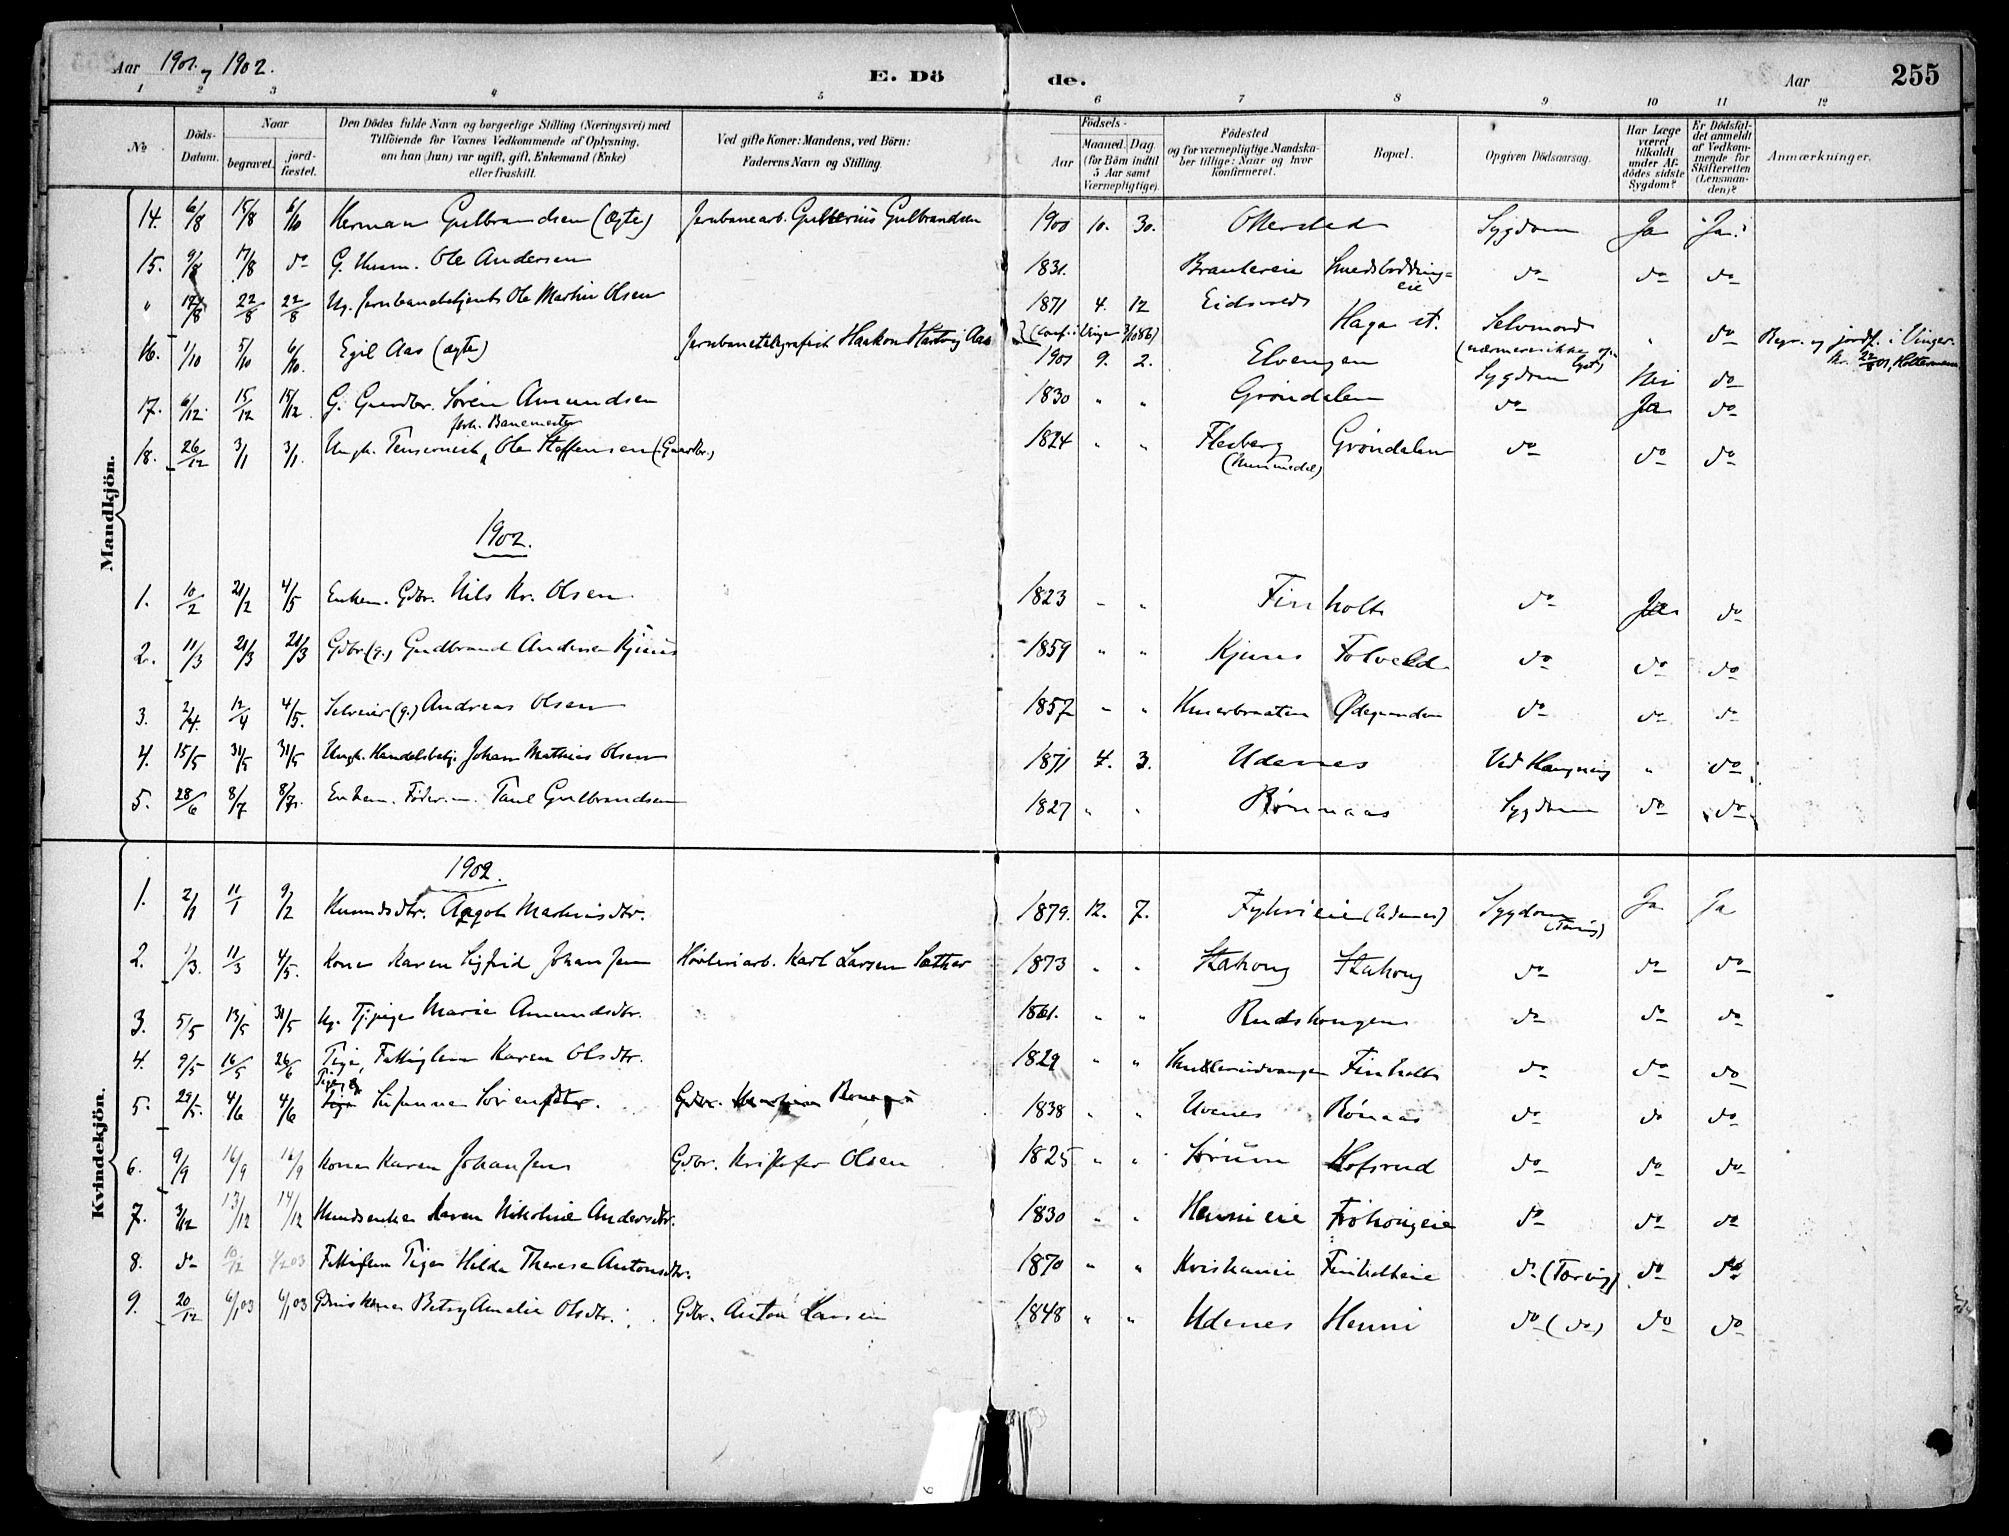 Aar 1901. og 1902.
E. Dö
de.
Aar
255
1 2 3 4 5 6 7 8 9 10 11 12
No
Döds-Datum.
Naar
begravet.
jord-fæstet.
Den Dödes fulde Navn og borgerlige Stilling (Næringsvei) med
Tilföiende for Voxnes Vedkommende af Oplysning,
om han (hun) var ugift, gift, Enkemand (Enke)
eller fraskilt.
Ved gifte Koner: Mandens, ved Börn:
Faderens Navn og Stilling.
Födsels-
Aar
Maaned. Dag
(for Börn indtil
5 Aar samt
Værnepligtige).
Födested
og for værnepligtige Mandska-
ber tillige: Naar og hvor
konfirmeret.
Bopæl.
Opgiven Dödsaarsag.
Har Læge
været
tilkaldt
under Af-
dödes sidste
Sygdom?
Er Dödsfal-
det anmeldt
af Vedkom-
mende for
Skifteretten
(Lensman-
den)?
Anmærkninger.
Mandkjön.
14. 6/8 15/8 6/10 Herman Gulbrandsen (ægte) Jernbanearb. Gulbrandsen 1900 10. 30. Ollerstad Sygdom Ja Ja
15. 9/8 17/8 do G. Husm. Ole Andersen 1831. Brautereie do do do
" 17/8 22/8 22/8 Ug. Jernbanebetjent Ole Martin Olsen 1871 4. 12 Eidsvold Haga st. Selvmord " do Begr. og jordf. i Vinger
(Conf. i Vinger 3/10 86) (nærmere ikke opgivet) 22/8 01,
16. 1/10 5/10 6/10. Egil Aas (ægte) Jernbanetelegrafist Haakon Hartvig Aas 1901 9. 2. Elvengen Sygdom Nei do
17. 6/12. 15/12 15/12. G. Gaardbr. Sören Amundsen 1830 " " Gröndalen do Ja do
18. 26/12 3/1 3/1. Ungk. Pensionist, forh. Banemester Ole Steffensen (Gaardbr.) 1824 " " Flesberg (Numedal) Gröndalen do do do
1902.
1. 10/2 21/2 4/5 Enkem. Gdbr. Nils Kr. Olsen 1823 " " Finholt do Ja do
2. 11/3 21/3 21/3 Gdbr (g.) Gudbrand Andersen Kjuus 1859 " " Kjuus Folveld do do do
3. 2/4. 12/4 4/5. Selveier (g.) Andreas Olsen 1857 " " do do do
4. 15/5 31/5 31/5 Ungk. Handelsbetj. Johan Mathias Olsen 1871 4. 3. Udenes Ved Hængning " do
5. 28/6 8/7 8/7. Enkem. Föder.m. Paul Gulbrandsen 1827 " " Rönnaas Sygdom do do
Kvindekjön.
1902.
1. 2/1 11/1 9/2 Husmdsdtr. Aagot Martinsdtr. 1879. 12. 7. (Udenes) Sygdom (Tæring) Ja Ja
2. 1/3. 11/3 4/5. Kone Karen Sigfrid Johansen Hövleriarb. Karl Larsen Sæther 1873 " " Stahong Stahong do do do
3. 5/5 13/5 31/5 Ug. Tj.pige Marie Amundsdtr. 1861. " " Rudshougen do do do
4. 9/5 16/5 26/6 Pige, Fattiglem Karen Olsdtr. 1829 " " Finholt do do do
5. 29/5. 4/6 4/6 Susanne Sörensdtr. Gdbr. 1838 " " Uvenes Rönaas do do do
6. 9/9 16/9 16/9 Kone Karen Johansen Gdbr. Kristofer Olsen 1825 " " Sörum Hofsrud do do do
7. 3/12 13/12 14/12 Husmdsenke Karen Nikoline Andersdtr. 1830 " " Hennieie Fröhougeie do do do
8. do 10/12 Fattiglem Pige Hilda Therese Antonsdtr. 1870 " " Kristiania Finholteie do (Tæring) do do
9. 20/12 6/1 03 6/1 03 Gdmiskone Betsy Amalie Olsdtr. Gdbr. Anton Hansen 1848 " " Udenes Henni do (do) do do